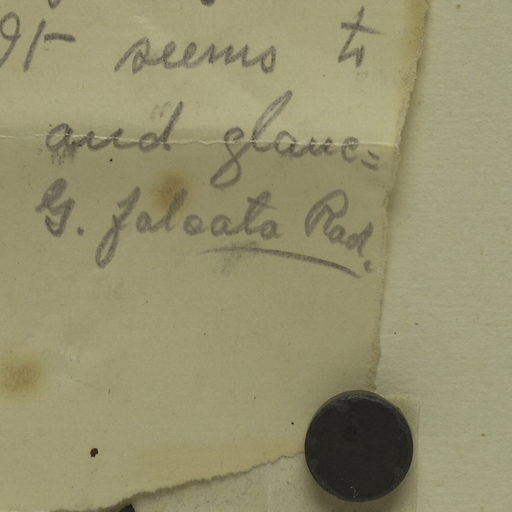 It seems to
and glauc=
G. falcata Rad.